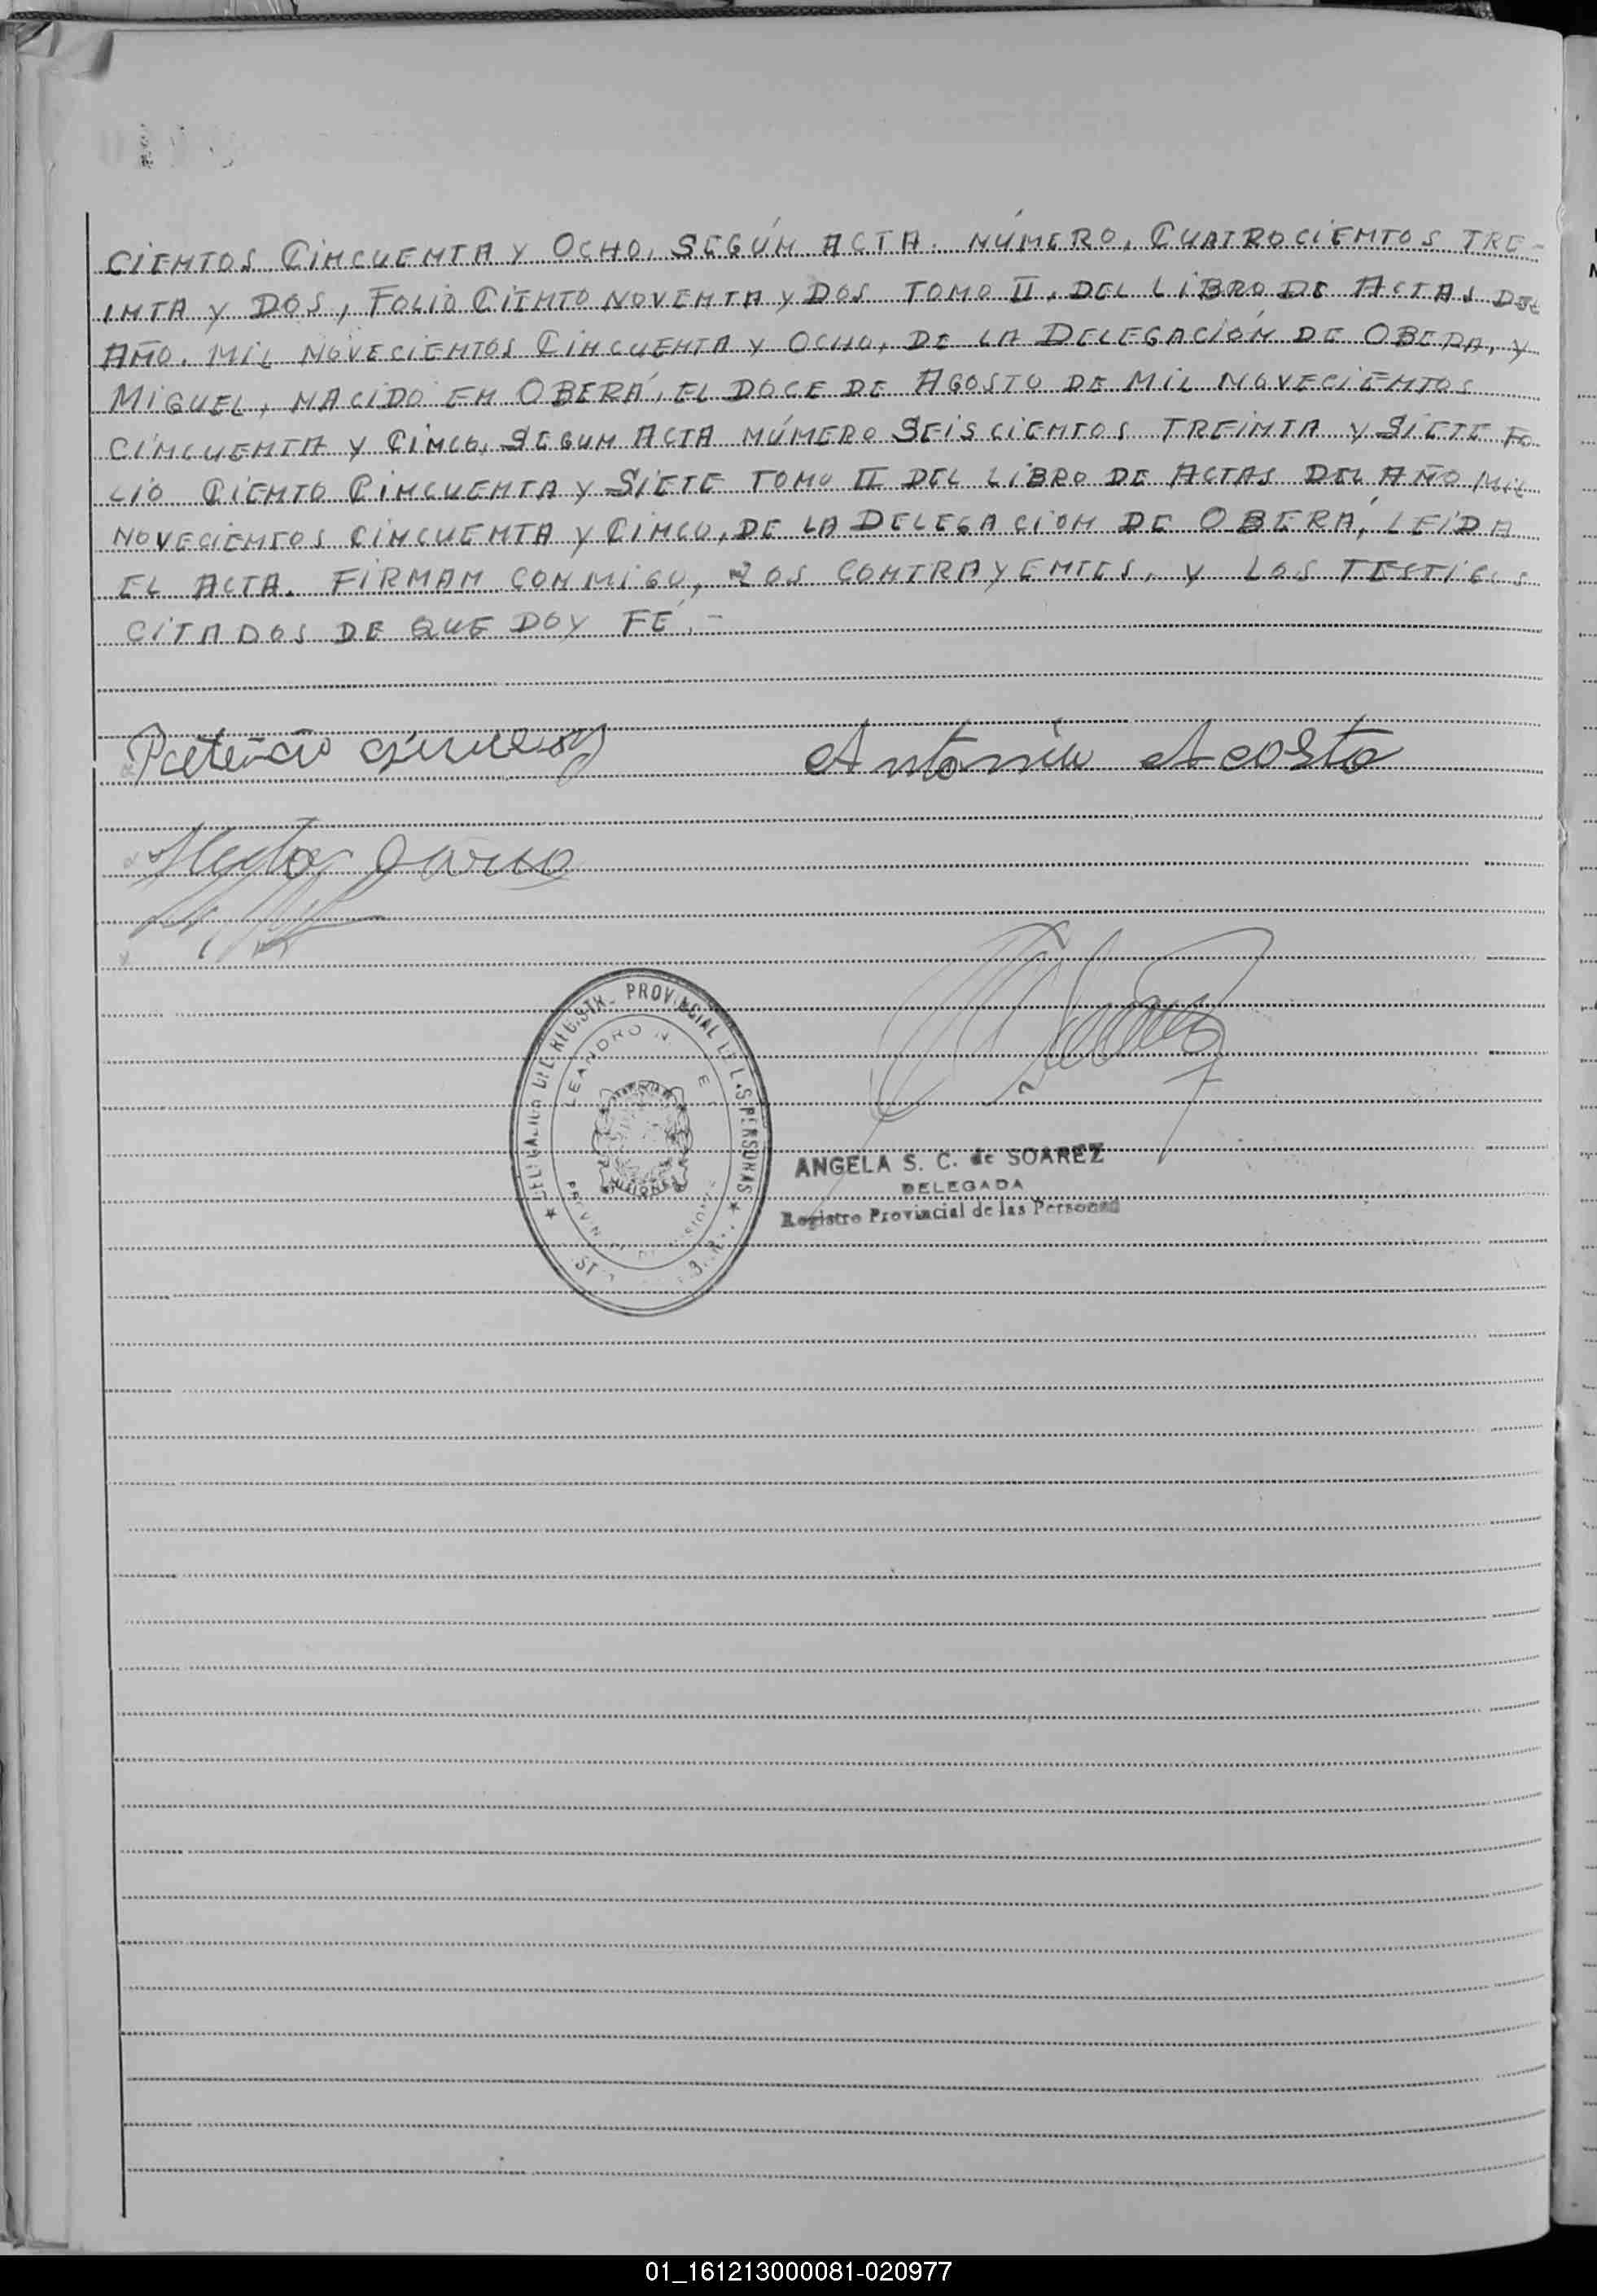 CIENTOS CINCUENTA Y OCHO, SEGÚN ACTA. NÚMERO, CUATROCIENTOS TRE-
INTA Y DOS, FOLIO CIENTO NOVENTA Y DOS TOMO II, DEL LIBRO DE ACTAS DEL
AÑO. MIL NOVECIENTOS CINCUENTA Y OCHO, DE LA DELEGACIÓN DE OBERA, Y
MIGUEL, NACIDO EN OBERÁ, EL DOCE DE AGOSTO DE MIL NOVECIENTOS
CINCUENTA Y CINCO, SEGUN ACTA NÚMERO SEISCIENTOS TREINTA Y SIETE FO-
LIO CIENTO CINCUENTA Y SIETE TOMO II DEL LIBRO DE ACTAS DEL AÑO MIL
NOVECIENTOS CINCUENTA Y CINCO, DE LA DELEGACION DE OBERÁ, LEIDA
EL ACTA. FIRMAN CONMIGO, LOS CONTRAYENTES, Y LOS TESTIGOS
CITADOS DE QUE DOY FÉ.-
Antonia Acosta
Hector
PROVINCIAL
PERSONAS
LEANDRO N.
MISIONES
ANGELA S. C. de SOAREZ
DELEGADA
Registro Provincial de las Personas
01_161213000081-020977